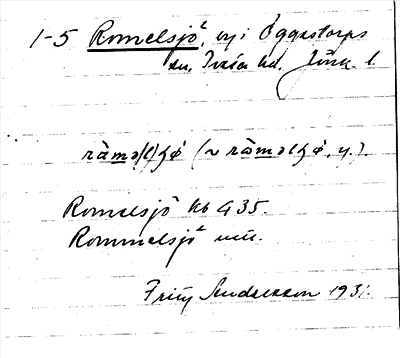 1-5 Romelsjö², by i Öggestorps
sn, Tveta hd. Jönk. l.
ràmə(l)ʂø (~ ràməlʂø, y.).
Romelsjö hb G 35.
Rommelsjö² uu.
Fritz Andersson 1931.